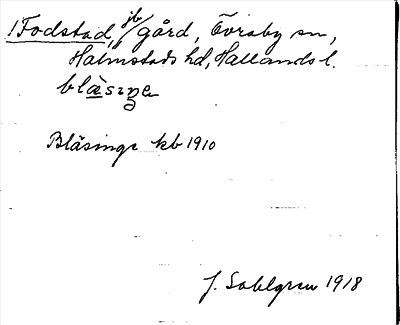 1 Fodstad, jb/gård, Övraby sn,
Halmstads hd, Hallands l.
blàsıŋə
Blåsinge kb 1910
J. Sahlgren 1918